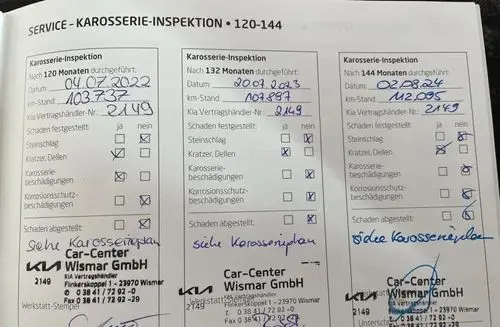 SERVICE – KAROSSERIE-INSPEKTION • 120-144
Karosserie-Inspektion
Nach 120 Monaten durchgeführt:
Datum: 04.07.2022
km-Stand: 103.737
Kia Vertragshändler-Nr.: 2149
Schaden festgestellt: ja nein
Steinschlag
Kratzer, Dellen
Karosserie-
beschädigungen
Korrosionsschutz-
beschädigungen
Schaden abgestellt:
siehe Karosserieplan
KIA Car-Center
Wismar GmbH
2149 KIA Vertragshändler
Flinkerskoppel 1 - 23970 Wismar
0 38 41 / 72 92 -0
Fax 0 38 41 / 72 92 -29
Werkstatt-Stempel
Karosserie-Inspektion
Nach 132 Monaten durchgeführt:
Datum: 20.07.2023
km-Stand: 107.897
Kia Vertragshändler-Nr.: 2149
Schaden festgestellt: ja nein
Steinschlag
Kratzer, Dellen
Karosserie-
beschädigungen
Korrosionsschutz-
beschädigungen
Schaden abgestellt:
siehe Karosserieplan
KIA Car-Center
Wismar GmbH
2149 KIA Vertragshändler
Flinkerskoppel 1 - 23970 Wismar
0 38 41 / 72 92 -0
Werkstatt-Stempel
Fax 0 38 41 / 72 92 -29
Karosserie-Inspektion
Nach 144 Monaten durchgeführt:
Datum: 02.08.24
km-Stand: 112.095
Kia Vertragshändler-Nr.: 2149
Schaden festgestellt: ja nein
Steinschlag
Kratzer, Dellen
Karosserie-
beschädigungen
Korrosionsschutz-
beschädigungen
Schaden abgestellt:
siehe Karosserieplan
KIA Car-Center
Wismar GmbH
2149 KIA Vertragshändler
Flinkerskoppel 1 - 23970 Wismar
0 38 41 / 72 92 -0
Werkstatt-Stempel
Fax 0 38 41 / 72 92 -29